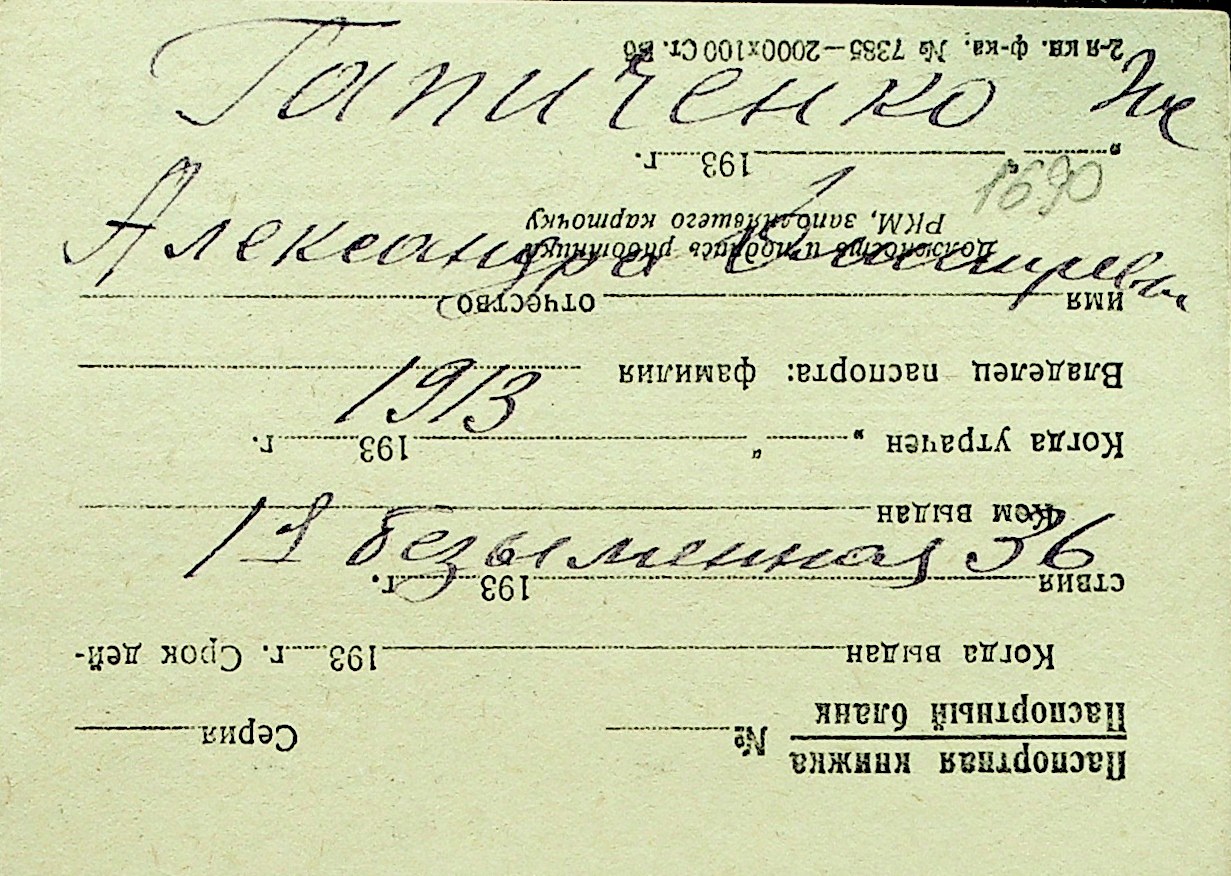 Гапиченко
1690
Александра
1913
безыменная 36
Паспортная книжка
Паспортный бланк
№ Серия
Когда выдан 193 г. Срок дей-
ствия 193 г.
Кем выдан
Когда утрачен „ “ 193 г.
Владелец паспорта: фамилия
имя отчество
Должность и подпись работника
РКМ, заполнявшего карточку
„ “ 193 г.
2-я кв. ф-ка. № 7385—2000х100 Ст.